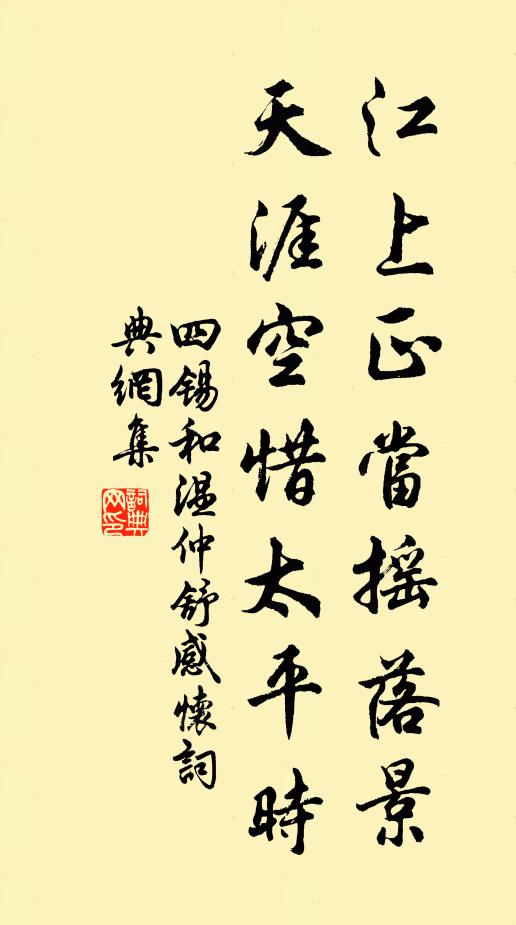 江上正當摇落景
天涯空惜太平時
四锡和温仲舒感懷詞
典網集
詞典网印